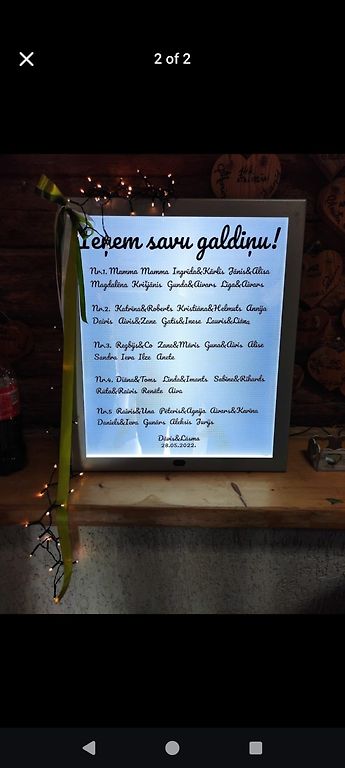 2 of 2
Ieņem savu galdiņu!
Nr.1. Mamma Mamma Ingrīda&Kārlis Jānis&Alisa
Magdalēna Krišjānis Gunda&Aivars Līga&Aivars
Nr.2. Katrīna&Roberts Kristiāna&Helmuts Annija
Dairis Aivis&Zane Gatis&Inese Lauris&Liāna
Nr.3. Regbijs&Co Zane&Māris Guna&Airis Alise
Sandra Ieva Ilze Anete
Nr.4. Diāna&Toms Linda&Imants Sabīne&Rihards
Rūta&Raivis Renāte Aiva
Nr.5 Raivis&Una Pēteris&Agnija Aivars&Karīna
Daniels&Ieva Gunārs Aleksis Jurģis
Dāvis&Lāsma
28.05.2022.